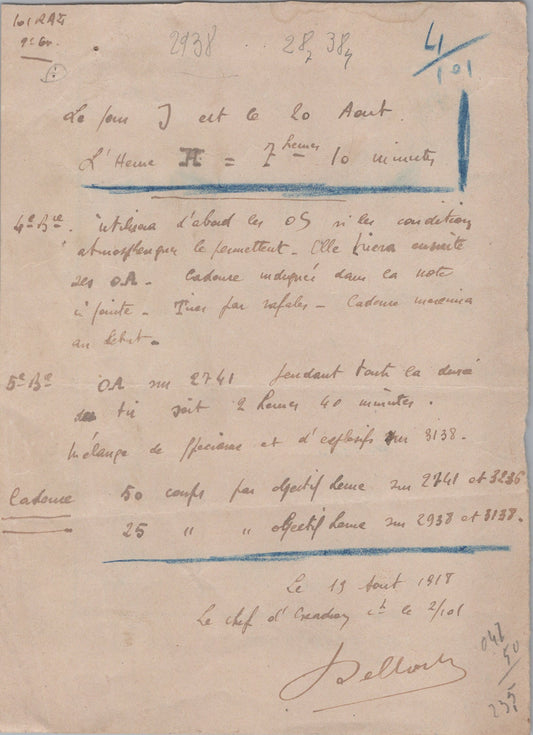 101 RAL
9e Gr.
2938 28 38
4/101
Le jour J est le 20 Aout.
L'Heure H = 7 heures 10 minutes
4e Bie. utilisera d'abord les OS si les conditions
atmosphériques le permettent. Elle tirera ensuite
ses OA. Cadence indiquée dans la note
ci jointe. Tirer par rafales. Cadence maxima
au début.
5e Bie OA sur 2741 pendant toute la durée
du tir soit 2 heures 40 minutes.
Mélange de spéciaux et d'explosifs sur 3138.
Cadence 50 coups par objectif heure sur 2741 et 3236
25 " " objectif heure sur 2938 et 3138.
Le 19 Aout 1918
Le chef d'Escadron Ct le 2/101
50
235